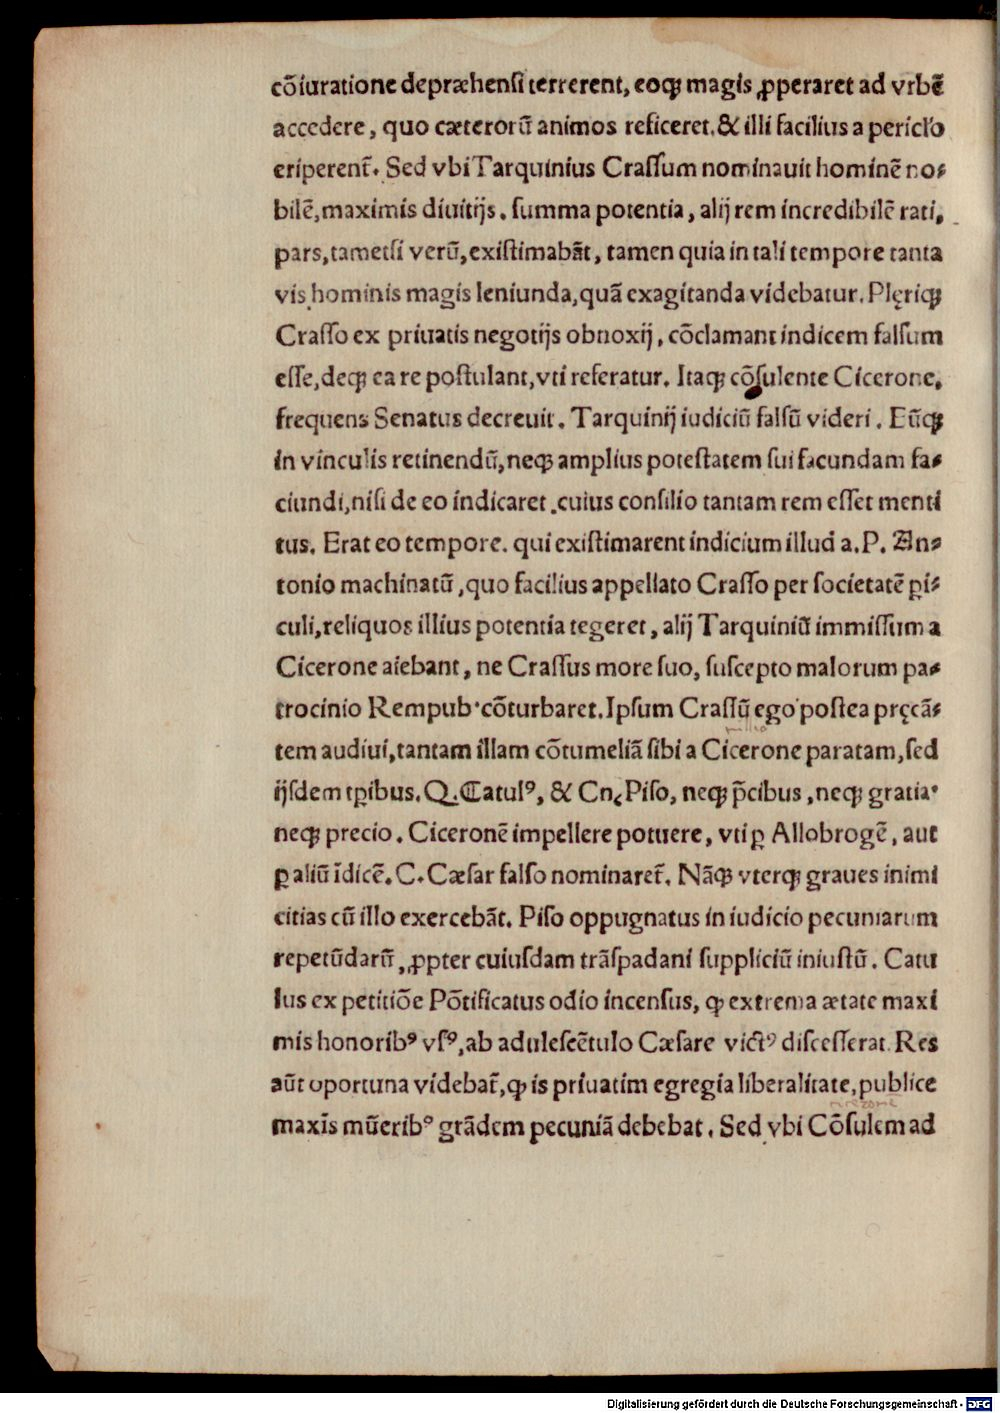 cõiuratione depræhensi terrerent, eoqꝫ magis ꝓperaret ad vrbẽ
accedere, quo cæterorũ animos reficeret. & illi facilius a pericľo
eriperent̃. Sed vbi Tarquinius Craſſum nominauit hominẽ no⸗
bilẽ, maximis diuitijs. ſumma potentia, alij rem incredibilẽ rati,
pars, tametſi verũ, exiſtimabãt, tamen quia in tali tempore tanta
vis hominis magis leniunda, quã exagitanda videbatur. Plęriqꝫ
Craſſo ex priuatis negotijs obnoxij, cõclamant indicem falſum
eſſe, deqꝫ ea re poſtulant, vti referatur. Itaqꝫ cõſulente Cicerone,
frequens Senatus decreuit. Tarquinij iudiciũ falſũ videri. Eũqꝫ
in vinculis retinendũ, neqꝫ amplius poteſtatem ſui facundam fa⸗
ciundi, niſi de eo indicaret .cuius conſilio tantam rem eſſet menti
tus. Erat eo tempore. qui exiſtimarent indicium illud a. P. An⸗
tonio machinatũ, quo facilius appellato Craſſo per ſocietatẽ ꝑi⸗
culi, reliquos illius potentia tegeret, alij Tarquiniũ immiſſum a
Cicerone aiebant, ne Craſſus more ſuo, ſuſcepto malorum pa⸗
trocinio Rempub· cõturbaret. Ipſum Craſſũ ego poſtea pręcã⸗
tem audiui, tantam illam cõtumeliã ſibi a Cicerone paratam, ſed
ijſdem tꝑibus. Q. Catulꝰ, & Cn. Piſo, neqꝫ p̃cibus, neqꝫ gratia·
neqꝫ precio. Ciceronẽ impellere potuere, vti ꝑ Allobrogẽ, aut
ꝑ aliũ ĩdicẽ. C. Cæſar falſo nominaret̃. Nãqꝫ vterqꝫ graues inimi
citias cũ illo exercebãt. Piſo oppugnatus in iudicio pecuniarum
repetũdarũ, ꝓpter cuiuſdam trãſpadani ſuppliciũ iniuſtũ. Catu
lus ex petitiõe Põtificatus odio incenſus, ꝙ extrema ætate maxi
mis honoribꝰ vſꝰ, ab aduleſcẽtulo Cæſare victꝰ diſceſſerat. Res
aũt oportuna videbat̃, ꝙ is priuatim egregia liberalitate, publice
maxĩs mũeribꝰ grãdem pecuniã debebat. Sed vbi Cõſulem ad
Digitalisierung gefördert durch die Deutsche Forschungsgemeinschaft - DFG